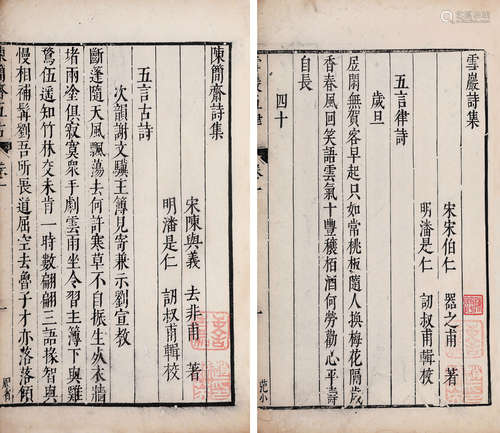 雪巖詩集
宋宋伯仁 器之甫 著
明潘是仁 訒叔甫輯校
五言律詩
歲旦
居閒無賀客早起只如常桃板隨人換梅花隔歲
香春風回笑語雲氣卜豐穰栢酒何勞勸心平壽
自長
四十
陳簡齋詩集
宋陳與義 去非甫 著
明潘是仁 訒叔甫輯校
五言古詩
次韻謝文驥主簿見寄兼示劉宣教
斷蓬隨天風飄蕩去何許寒草不自振生死依牆
堵兩塗俱寂寞眾手劇雲雨坐令習主簿下與雞
鶩伍遙知竹林交未肯一時數翩翩三語掾智與
慢相補髯劉吾所畏道屈空去魯子才亦落落傾